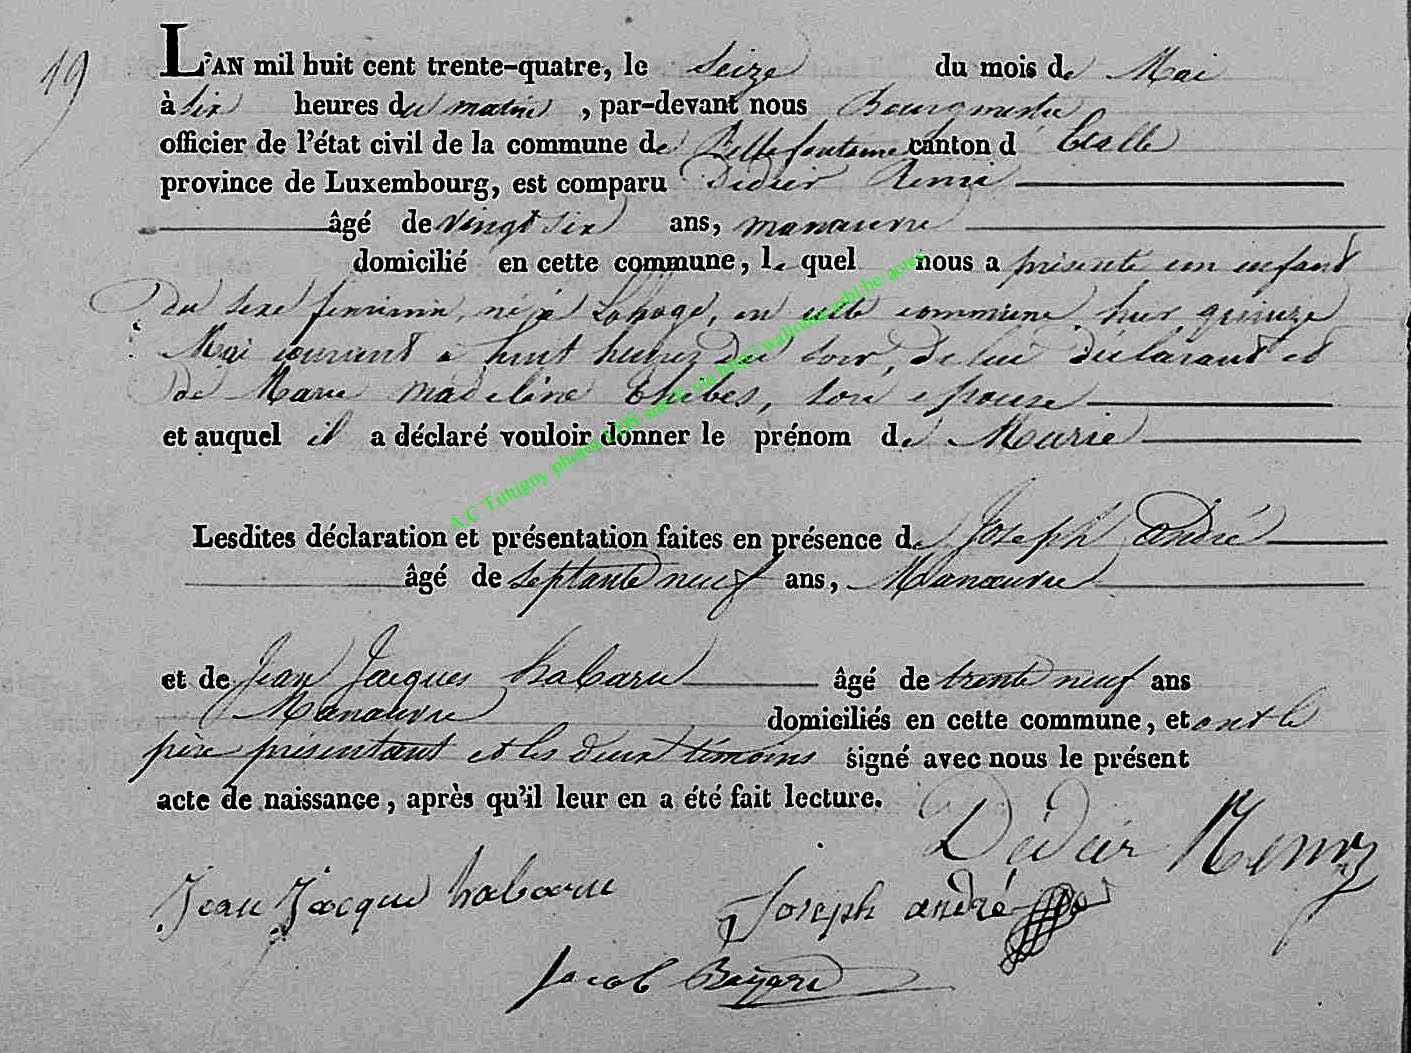 19
L'AN mil huit cent trente-quatre, le Seize du mois de Mai
à six heures du matin, par-devant nous Bourgmestre
officier de l'état civil de la commune de Bellefontaine canton d'Etalle
province de Luxembourg, est comparu Didier Remi
âgé de vingt six ans, manœuvre
domicilié en cette commune, le quel nous a présenté un enfant
Du sexe féminin, né à Lahage, en cette commune hier quinze
Mai courant à huit heures du soir, de lui déclarant et
de Marie Madeleine Thibes, son épouse
et auquel il a déclaré vouloir donner le prénom de Marie
Lesdites déclaration et présentation faites en présence de Joseph André
âgé de septante neuf ans, Manœuvre
et de Jean Jacques habaru âgé de trente neuf ans
Manœuvre domiciliés en cette commune, et ont le
père présentant et les deux témoins signé avec nous le présent
acte de naissance, après qu'il leur en a été fait lecture.
Didier Remy
Jean Jacque habaru
Joseph andré
Jacob
A.C Tintigny photos LDS sur & via http://wallonia.asbl.be/actes